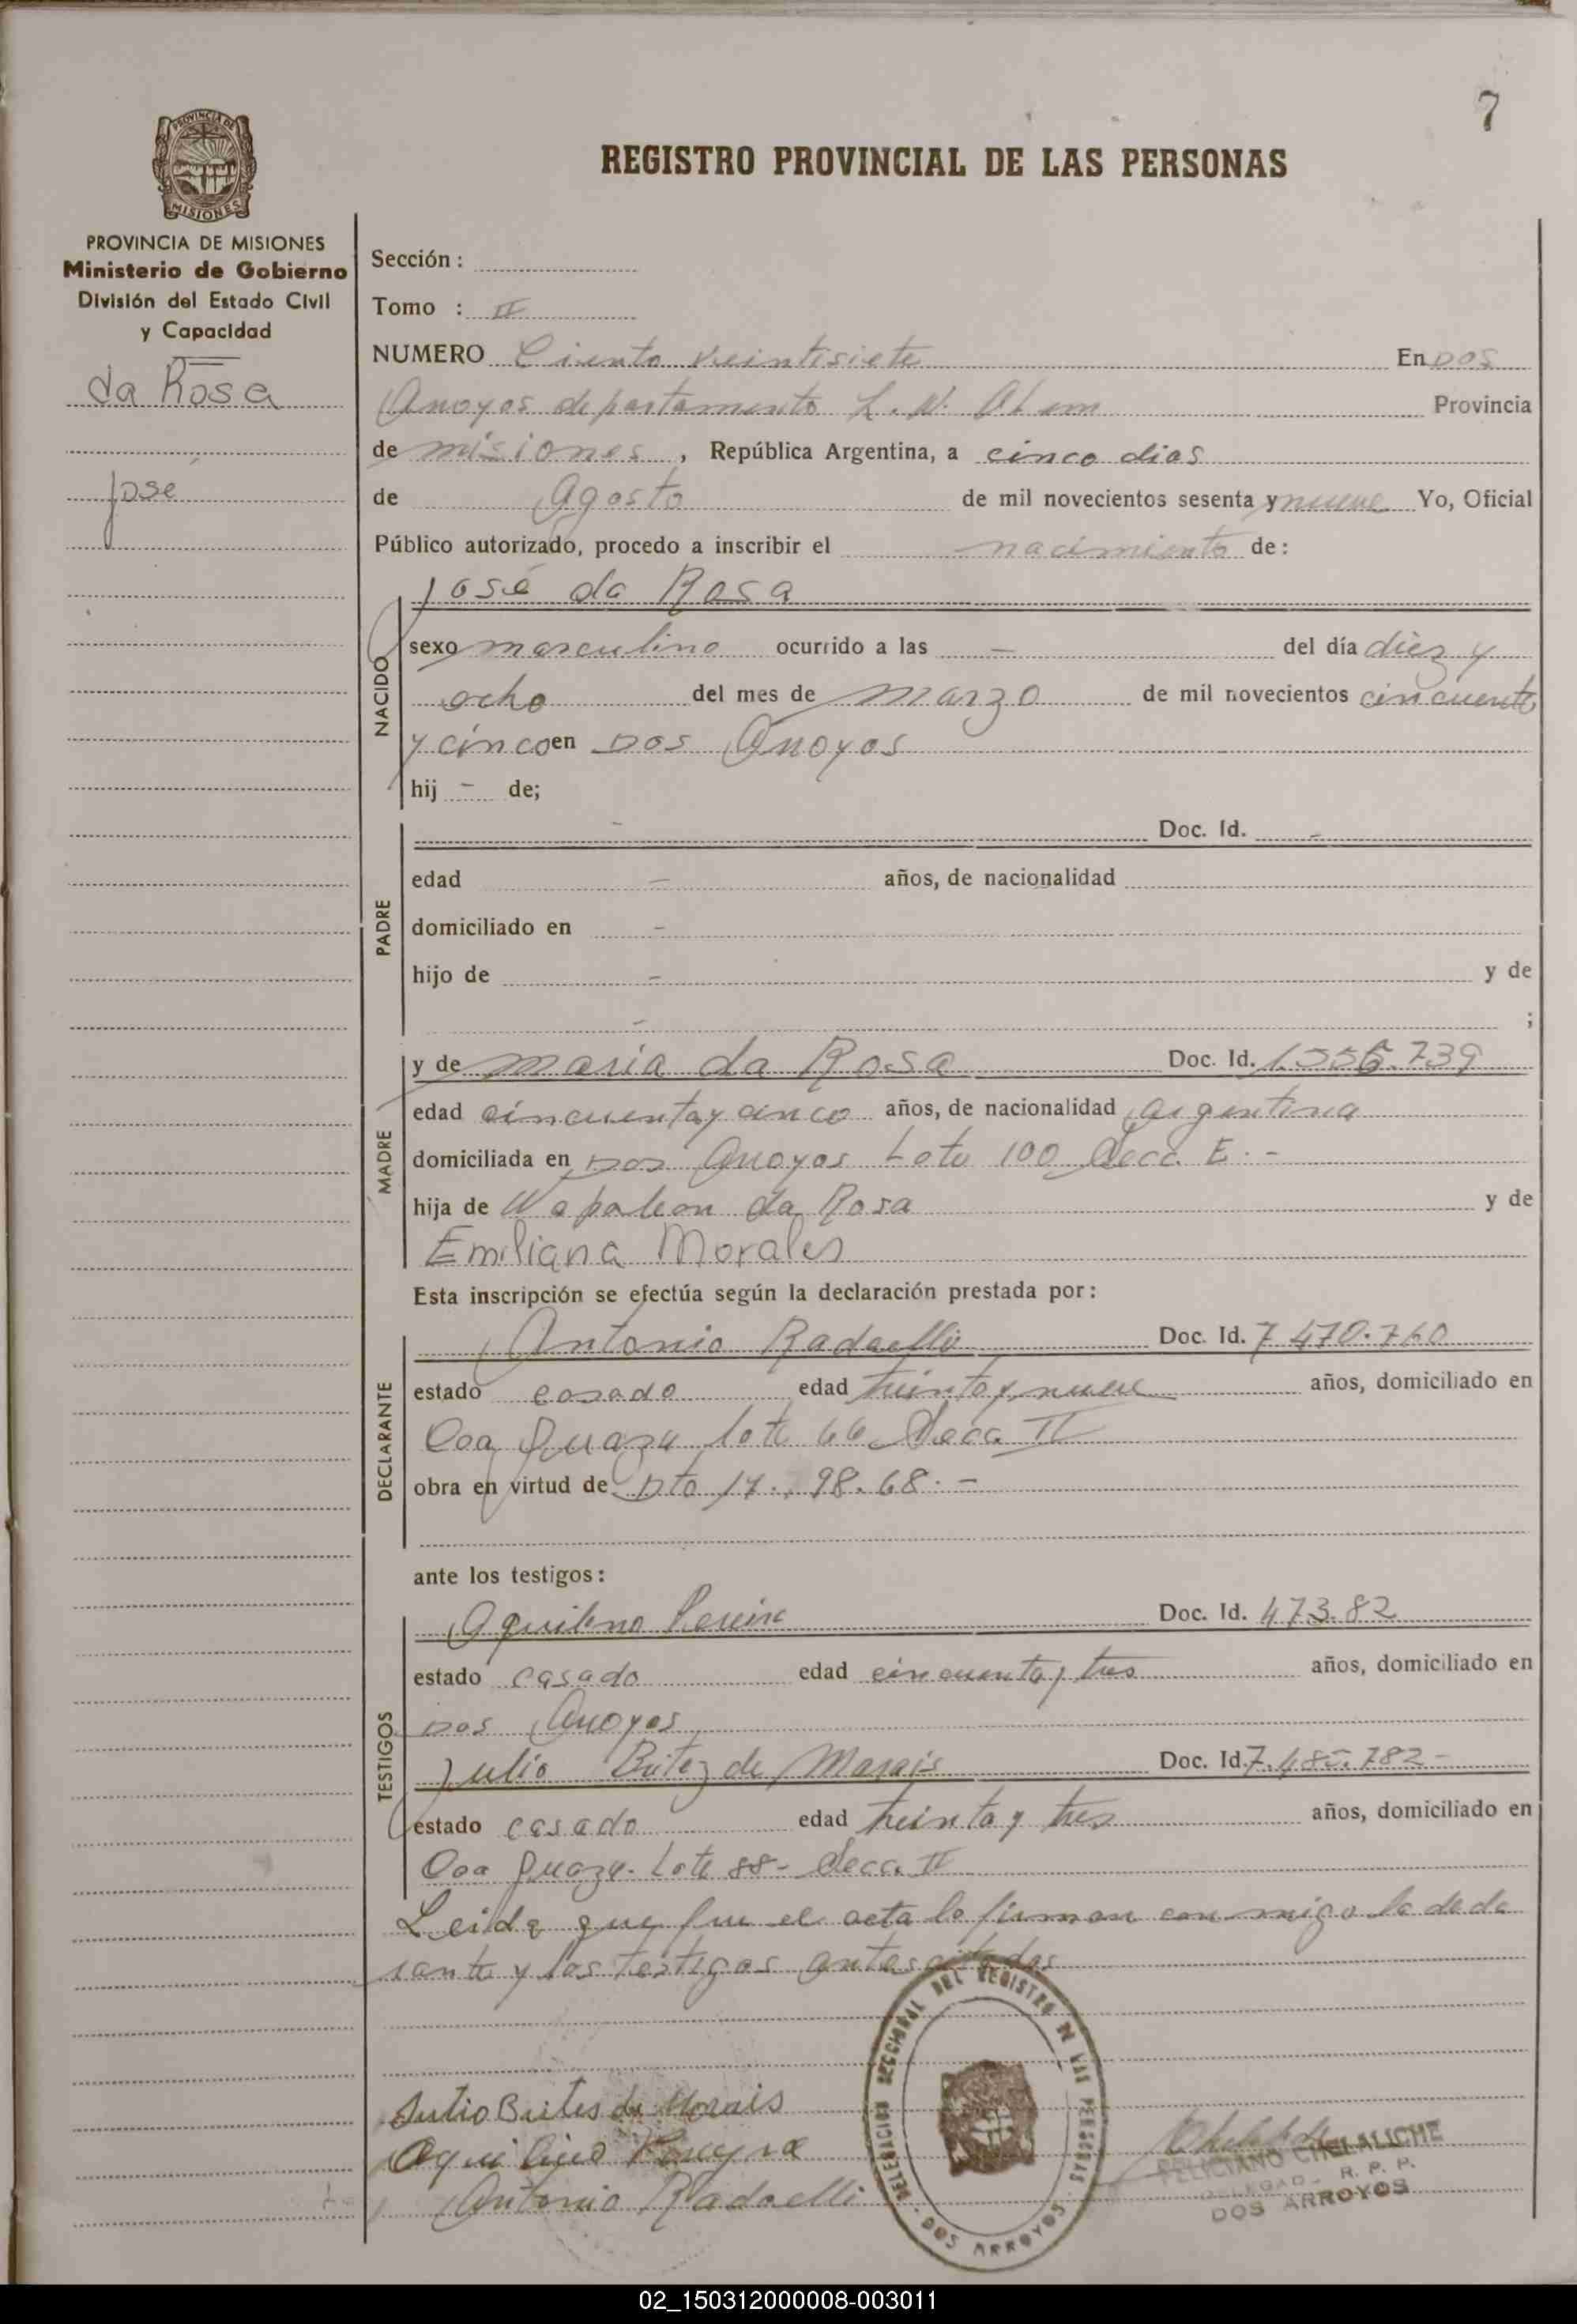 7
REGISTRO PROVINCIAL DE LAS PERSONAS
PROVINCIA DE
MISIONES
PROVINCIA DE MISIONES
Ministerio de Gobierno
División del Estado Civil
y Capacidad
da Rosa
José
Sección :
Tomo : II
NUMERO Ciento veintisiete En Dos
Arroyos departamento L. N. Alem Provincia
de misiones, República Argentina, a cinco dias
de Agosto de mil novecientos sesenta y nueve Yo, Oficial
Público autorizado, procedo a inscribir el nacimiento de:
NACIDO
José da Rosa
sexo masculino ocurrido a las – del día diez y
ocho del mes de marzo de mil novecientos cincuenta
y cinco en Dos Arroyos
hij – de;
PADRE
– Doc. Id. –
edad – años, de nacionalidad
domiciliado en –
hijo de – y de
– ;
MADRE
y de maria da Rosa Doc. Id. 1.556.739
edad cincuenta y cinco años, de nacionalidad argentina
domiciliada en Dos Arroyos Lote 100 Secc. E. -
hija de Napoleon da Rosa y de
Emiliana Morales
Esta inscripción se efectúa según la declaración prestada por:
DECLARANTE
Antonio Radaelli Doc. Id. 7.470.760
estado casado edad treinta y nueve años, domiciliado en
Oca Guazu lote 66 Secc. II
obra en virtud de Dto 17. 98. 68. -
ante los testigos:
TESTIGOS
Aquilino Pereira Doc. Id. 473.82
estado casado edad cincuenta y tres años, domiciliado en
Dos Arroyos
Julio Britez de Morais Doc. Id. 7.485.782 -
estado casado edad treinta y tres años, domiciliado en
Oca Guazu. Lote 88 - Secc. II
Leida que fue el acta la firman con migo la decla
rante y los testigos antes citados
Julio Brites de Morais
Aquilino
Antonio Radaelli
DELEGACION SECCIONAL DEL REGISTRO DE LAS PERSONAS
- DOS ARROYOS -
FELICIANO CHELALICHE
DELEGAD. R. P. P.
DOS ARROYOS
02_150312000008-003011